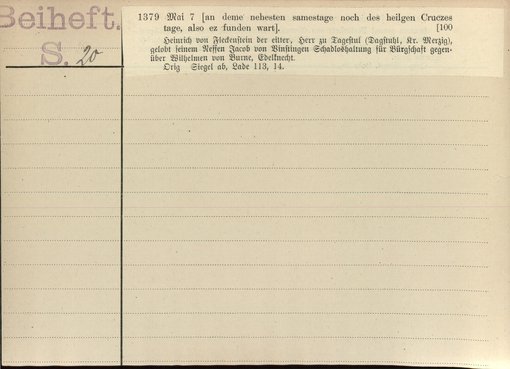 Beiheft.
S. 20
1379 Mai 7 [an deme nehesten samestage noch des heilgen Cruczes
tage, also ez funden wart]. [100
Heinrich von Fleckenstein der elter, Herr zu Tagestul (Dagstuhl, Kr. Merzig),
gelobt seinem Neffen Jacob von Vinstingen Schadloshaltung für Bürgschaft gegen-
über Wilhelmen von Burne, Edelknecht.
Orig Siegel ab, Lade 113, 14.